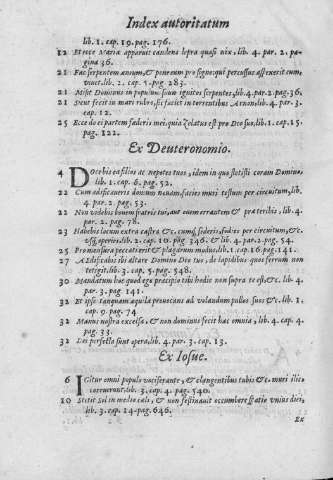 Index autoritatum
lib. 1. cap. 19. pag. 176.
12 Et ecce Maria apparuit candens lepra quasi nix, lib. 4. par. 2. pa-
gina 36.
21 Fac serpentem æneum, & pone eum pro signo: qui percussus aspexerit eum,
vivet, lib. 2. cap. 5. pag. 283.
21 Misit Dominus in populum suum ignitos serpentes, lib. 4. par. 2. pag. 36.
21 Sicut fecit in mari rubro, sic faciet in torrentibus Arnon, lib. 4. par. 3.
cap. 12.
25 Ecce do ei partem fœderis mei, quia zelatus est pro Deo suo, lib. 1. cap. 15.
pag. 122.
Ex Deuteronomio.
4 Docebis ea filios ac nepotes tuos, idem in quo stetisti coram Domino,
lib. 1. cap. 6. pag. 52.
22 Cum ædificaveris domum novam, facies muri tectum per circuitum, lib.
4. par. 2. pag. 53.
22 Non videbis bovem fratris tui, aut ovem errantem & præteribis, lib. 4.
par. 2. pag. 78.
23 Habebis locum extra castra &c. cumq; sederis, fodies per circuitum, &c.
lib. 2. cap. 10. pag 346. & lib. 4. par. 2. pag. 54.
25 Pro mensura peccati erit & plagarum modus, lib. 1. cap. 16. pag. 141.
27 Ædificabis ibi altare Domino Deo tuo, de lapidibus quos ferrum non
tetigit, lib. 3. cap. 5. pag. 548.
30 Mandatum hoc quod ego præcipio tibi hodie non supra te est, &c. lib. 4.
par. 3. pag. 141.
32 Et ipse tanquam aquila provocans ad volandum pullos suos &c. lib. 1.
cap. 9. pag. 74
32 Manus nostra excelsa, & non dominus fecit hæc omnia, lib. 4. cap. 4.
pag. 33.
32 Dei perfecta sunt opera, lib. 4. par. 3. cap. 13.
Ex Iosue.
6 Igitur omni populo vociferante, & clangentibus tubis &c. muri illico
corruerunt, lib. 3. cap. 4. pag. 540.
10 Stetit Sol in medio cæli, & non festinavit occumbere spatio unius diei,
lib. 3. cap. 14. pag. 646.
Ex